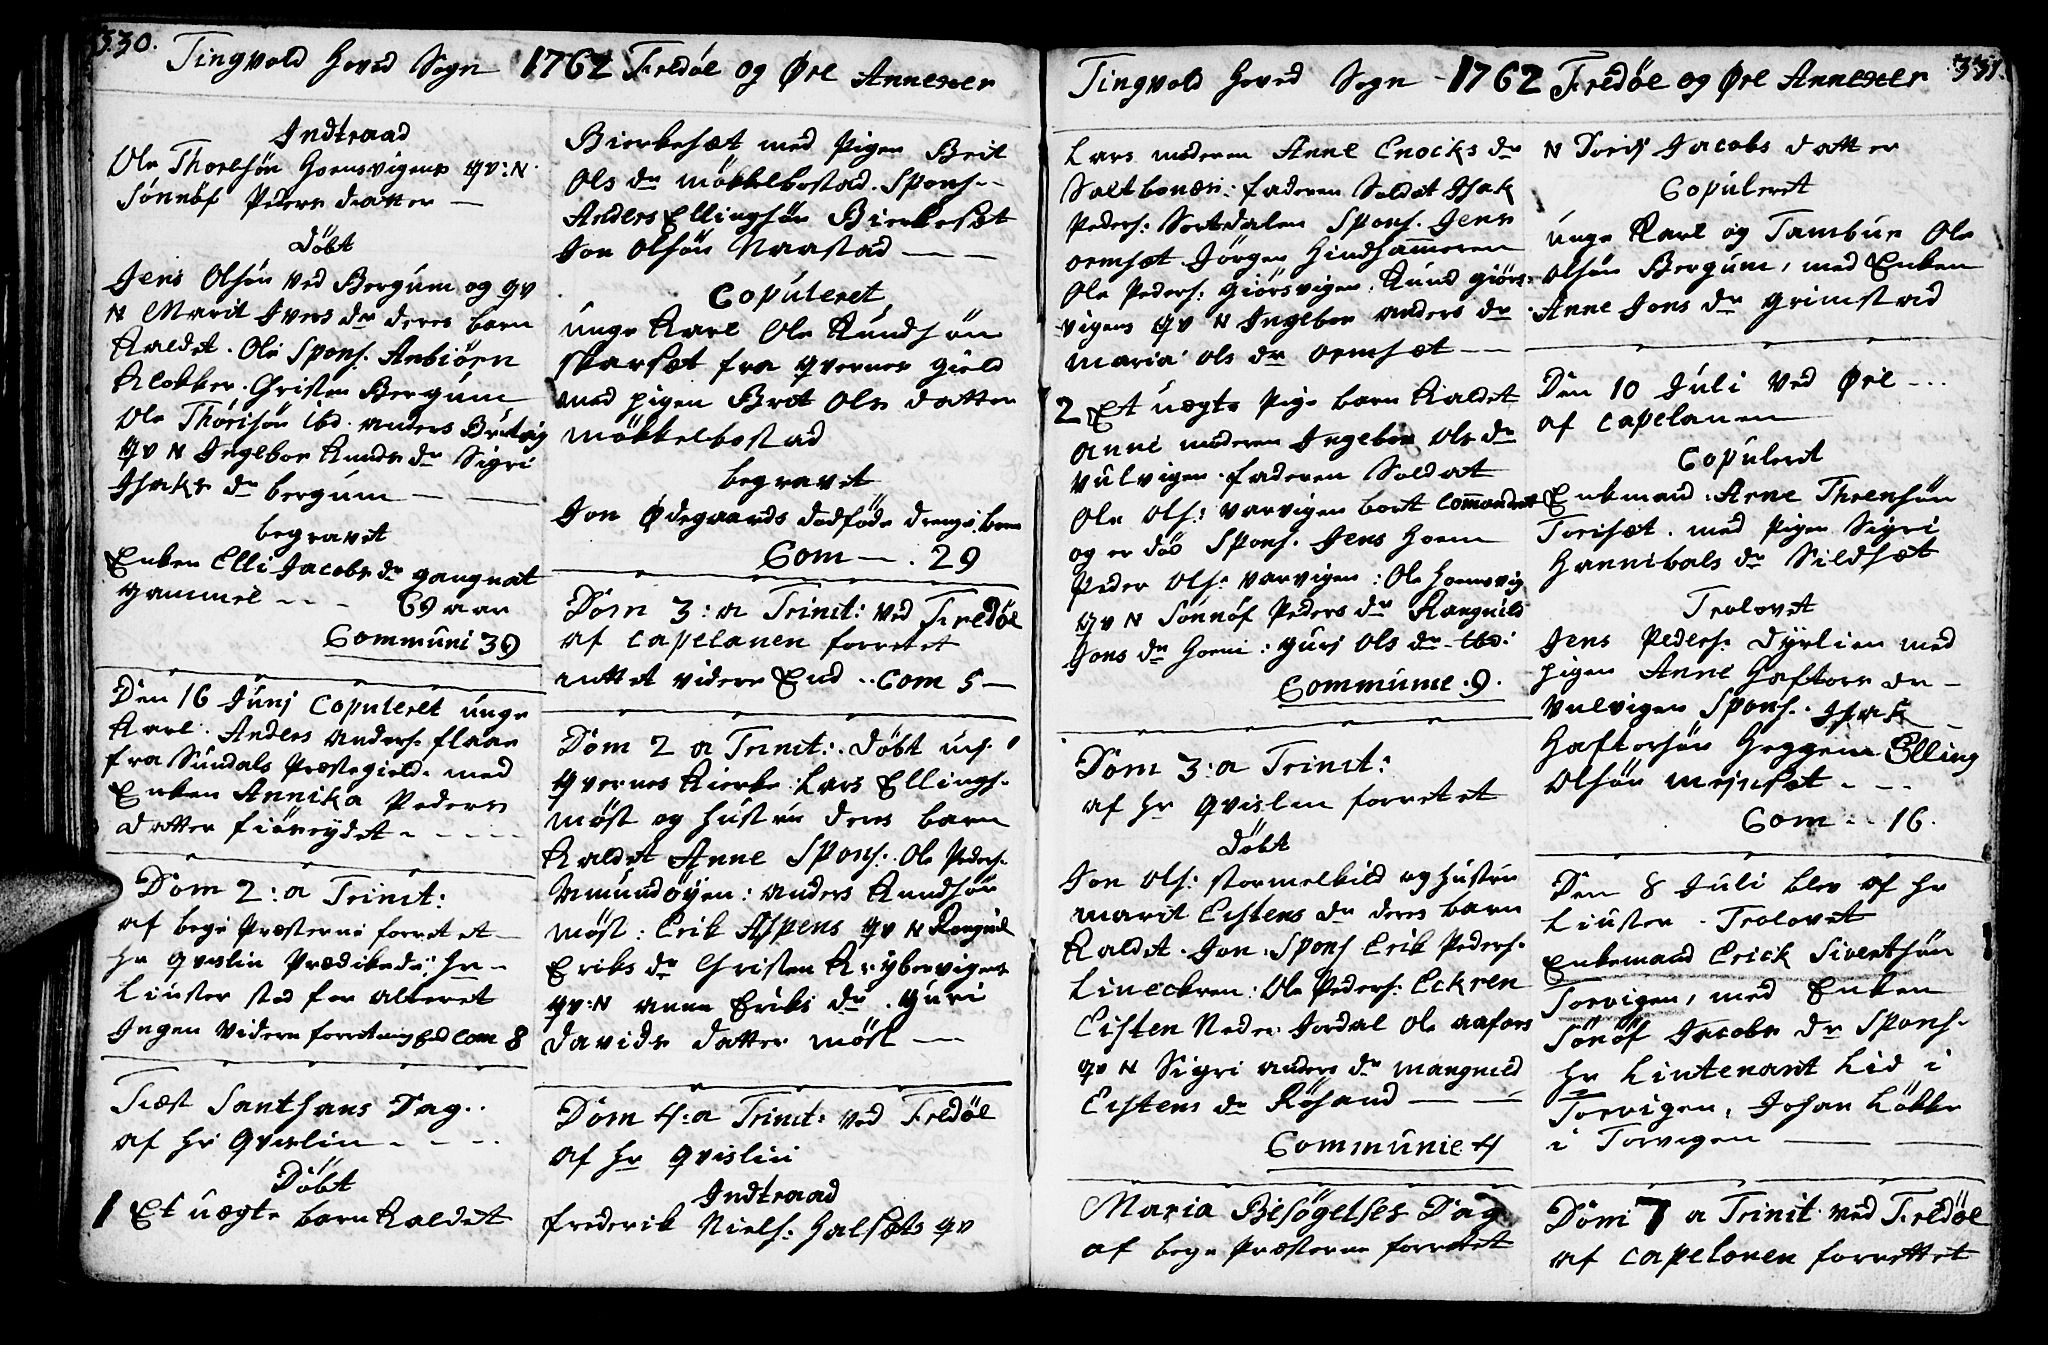 330. Tingvold Hoved Sogn 1762 Fredöe og Øre Annexer
Indtraad
Ole Thoresön Hoemsvigens qv: N
Sönnöf Peders datter —
Döbt
Jens Olsön ved Bergum og qv
N Marit Ivers dr deres barn
Kaldet. Ole Spons. Anbiörn
Klokker. Christen Bergum
Ole Thorisön ibd. anders
qv N Ingebor Knuds dr Sigri
Isaks dr bergum — —
begravet
Enken Elli Jacobs dr gangnat
gammel - - - 69 aar
Communi 39
Den 16 Junj Copuleret unge
Karl. Anders anders. flaae
fra Sundals Præstegield. med
Enken Annika Peders
datter fiöreydet - - - -
Dom 2: a Trinit:
af bege Præsterne forretet
hr qvislin Prædikede: hr -
Liuster stod for alteret
Ingen videre forretning End Com 8
Fæst Santhans Dag..
af hr qvislin - - -
Döbt
1 Et uægte barn kaldet
Bierkesæt med Pigen Beret
Ols dr möklebostad. Spons - -
Anders Ellingsön Bierkesæt
Jon Olsön Naastad — —
Copuleret
unge Karl Ole Knudsön
skarsæt fra qvernes gield
med pigen Brit Ols datter
möckkelbostad
begravet
Jon Ødegaards dödföde drenge barn
Com — . 29
Dom 3: a Trinit: ved Fredöe
af capelanen forretet
intet videre End .. Com 5 —
Dom 2 a Trinit: Döbt
qvernes Kierke: Lars Ellings.
möst og hustru deres barn
Kaldet Anne Spons: Ole Peders.
Amundöyen: anders Knudsön
möst: Erik Aspens qv N Rangnild
Eriks dr Christen Krybervigens
qv: N anne Eriks dr. Guri
Davids datter möst —
Dom 4: a Trinit: ved Fredöe
af hr qvislin
Indtraad
frederik Niels. Halsets qv
Tingvold Hoved Sogn - 1762 Fredöe og Øre Annexer 331.
Lars moderen Anne Enocks dr
Saltbonæss: faderen Soldat Isak
Peders: Sortdalen Spons. Jens
ormsæt Jörgen Hindhameren
Ole Peders: giörsvigen. Knud giörs-
vigens qv N Ingebor anders dr
maria ols dr ormsæt —
2 Et uægte Pige barn kaldet
anne moderen Ingebor Ols dr
vulvigen. faderen Soldat
Ole Ols: varvigen bort Commandert
og er död Spons. Jens Hoem
Peder Ols: varvigen: Ole Hoemsvig
qv N Sönnöf Peders dr Rangnild
Jons dr Hoem: guri Ols dr ibd:
Communic. 9.
Dom 3: a Trinit:
af hr qvislin forretet
Döbt
Jon Ols: stormelkild og hustru
marit Eistens dr deres barn
Kaldet. Jon. Spons Erik Peders.
Lineckren: Ole Peders: Eckren
Eisten Neder Jordal Ole aafors
qv N Sigri anders dr mangnild
Eistens dr Rösand — —
Communic 4
Maria Besögelses Dag
af bege Præsterne forretet
N Joris Jacobs datter
Copuleret
unge Karl og Tambur Ole
olsön Bergum, med Enken
Anne Jons dr grimstad
Den 10 Juli ved Øre - - -
af capelanen
Copuleret
Enkemand: Arne
Torisæt. med Pigen Sigri
Hannibals dr Sildsæt
Trolovet
Jens Peders. Dyrlien med
pigen Anne Haftors dr -
vulvigen Spons. Isak -
Haftorsön Heggem Elling
olsön mejsæt - - -
Com - - 16.
Den 8 Juli blev af hr
Liuster - Trolovet
Enkemand Erick Sivertsön
Torvigen, med Enken
Sönöf Jacobs dr Spons.
hr Liutenant Lid i
Torvigen, Johan Lökke
i Torvigen — —
Dom: 7 a Trinit ved Fredöe
af capelanen forrettet